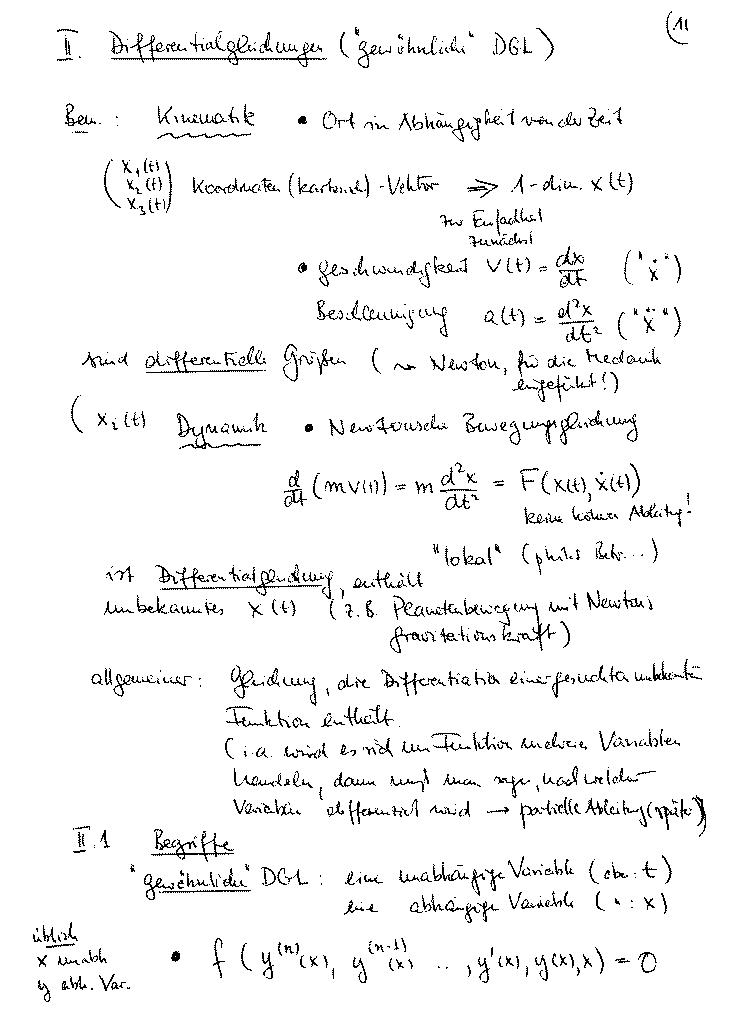 (11
II. Differentialgleichungen ("gewöhnliche" DGL)
Bem.: Kinematik • Ort in Abhängigkeit von der Zeit
(x₁(t) x₂(t) x₃(t)) Koordinaten (kartesisch)-Vektor ⇒ 1-dim. x(t)
zur Einfachheit
zunächst
• Geschwindigkeit v(t) = dx/dt ("ẋ")
Beschleunigung a(t) = d²x/dt² ("ẍ")
sind differentielle Größen (→ Newton, für die Mechanik
eingeführt!)
( xᵢ(t) Dynamik • Newtonsche Bewegungsgleichung
d/dt (m v(t)) = m d²x/dt² = F(x(t), ẋ(t))
keine höhere Ableitung!
"lokal" (philos. Betr...)
ist Differentialgleichung, enthält
unbekanntes x(t) (z.B. Planetenbewegung mit Newtons
Gravitationskraft)
allgemeiner: Gleichung, die Differentiation einer gesuchten unbekannten
Funktion enthält.
(i.a. wird es sich um Funktion mehrerer Variablen
handeln, dann muß man sagen, nach welcher
Variablen differenziert wird → partielle Ableitung (später))
II.1 Begriffe
"gewöhnliche" DGL: eine unabhängige Variable (oben: t)
eine abhängige Variable (": x)
üblich
x unabh
y abh. Var.
• f(y⁽ⁿ⁾(x), y⁽ⁿ⁻¹⁾(x) .. , y'(x), y(x), x) = 0